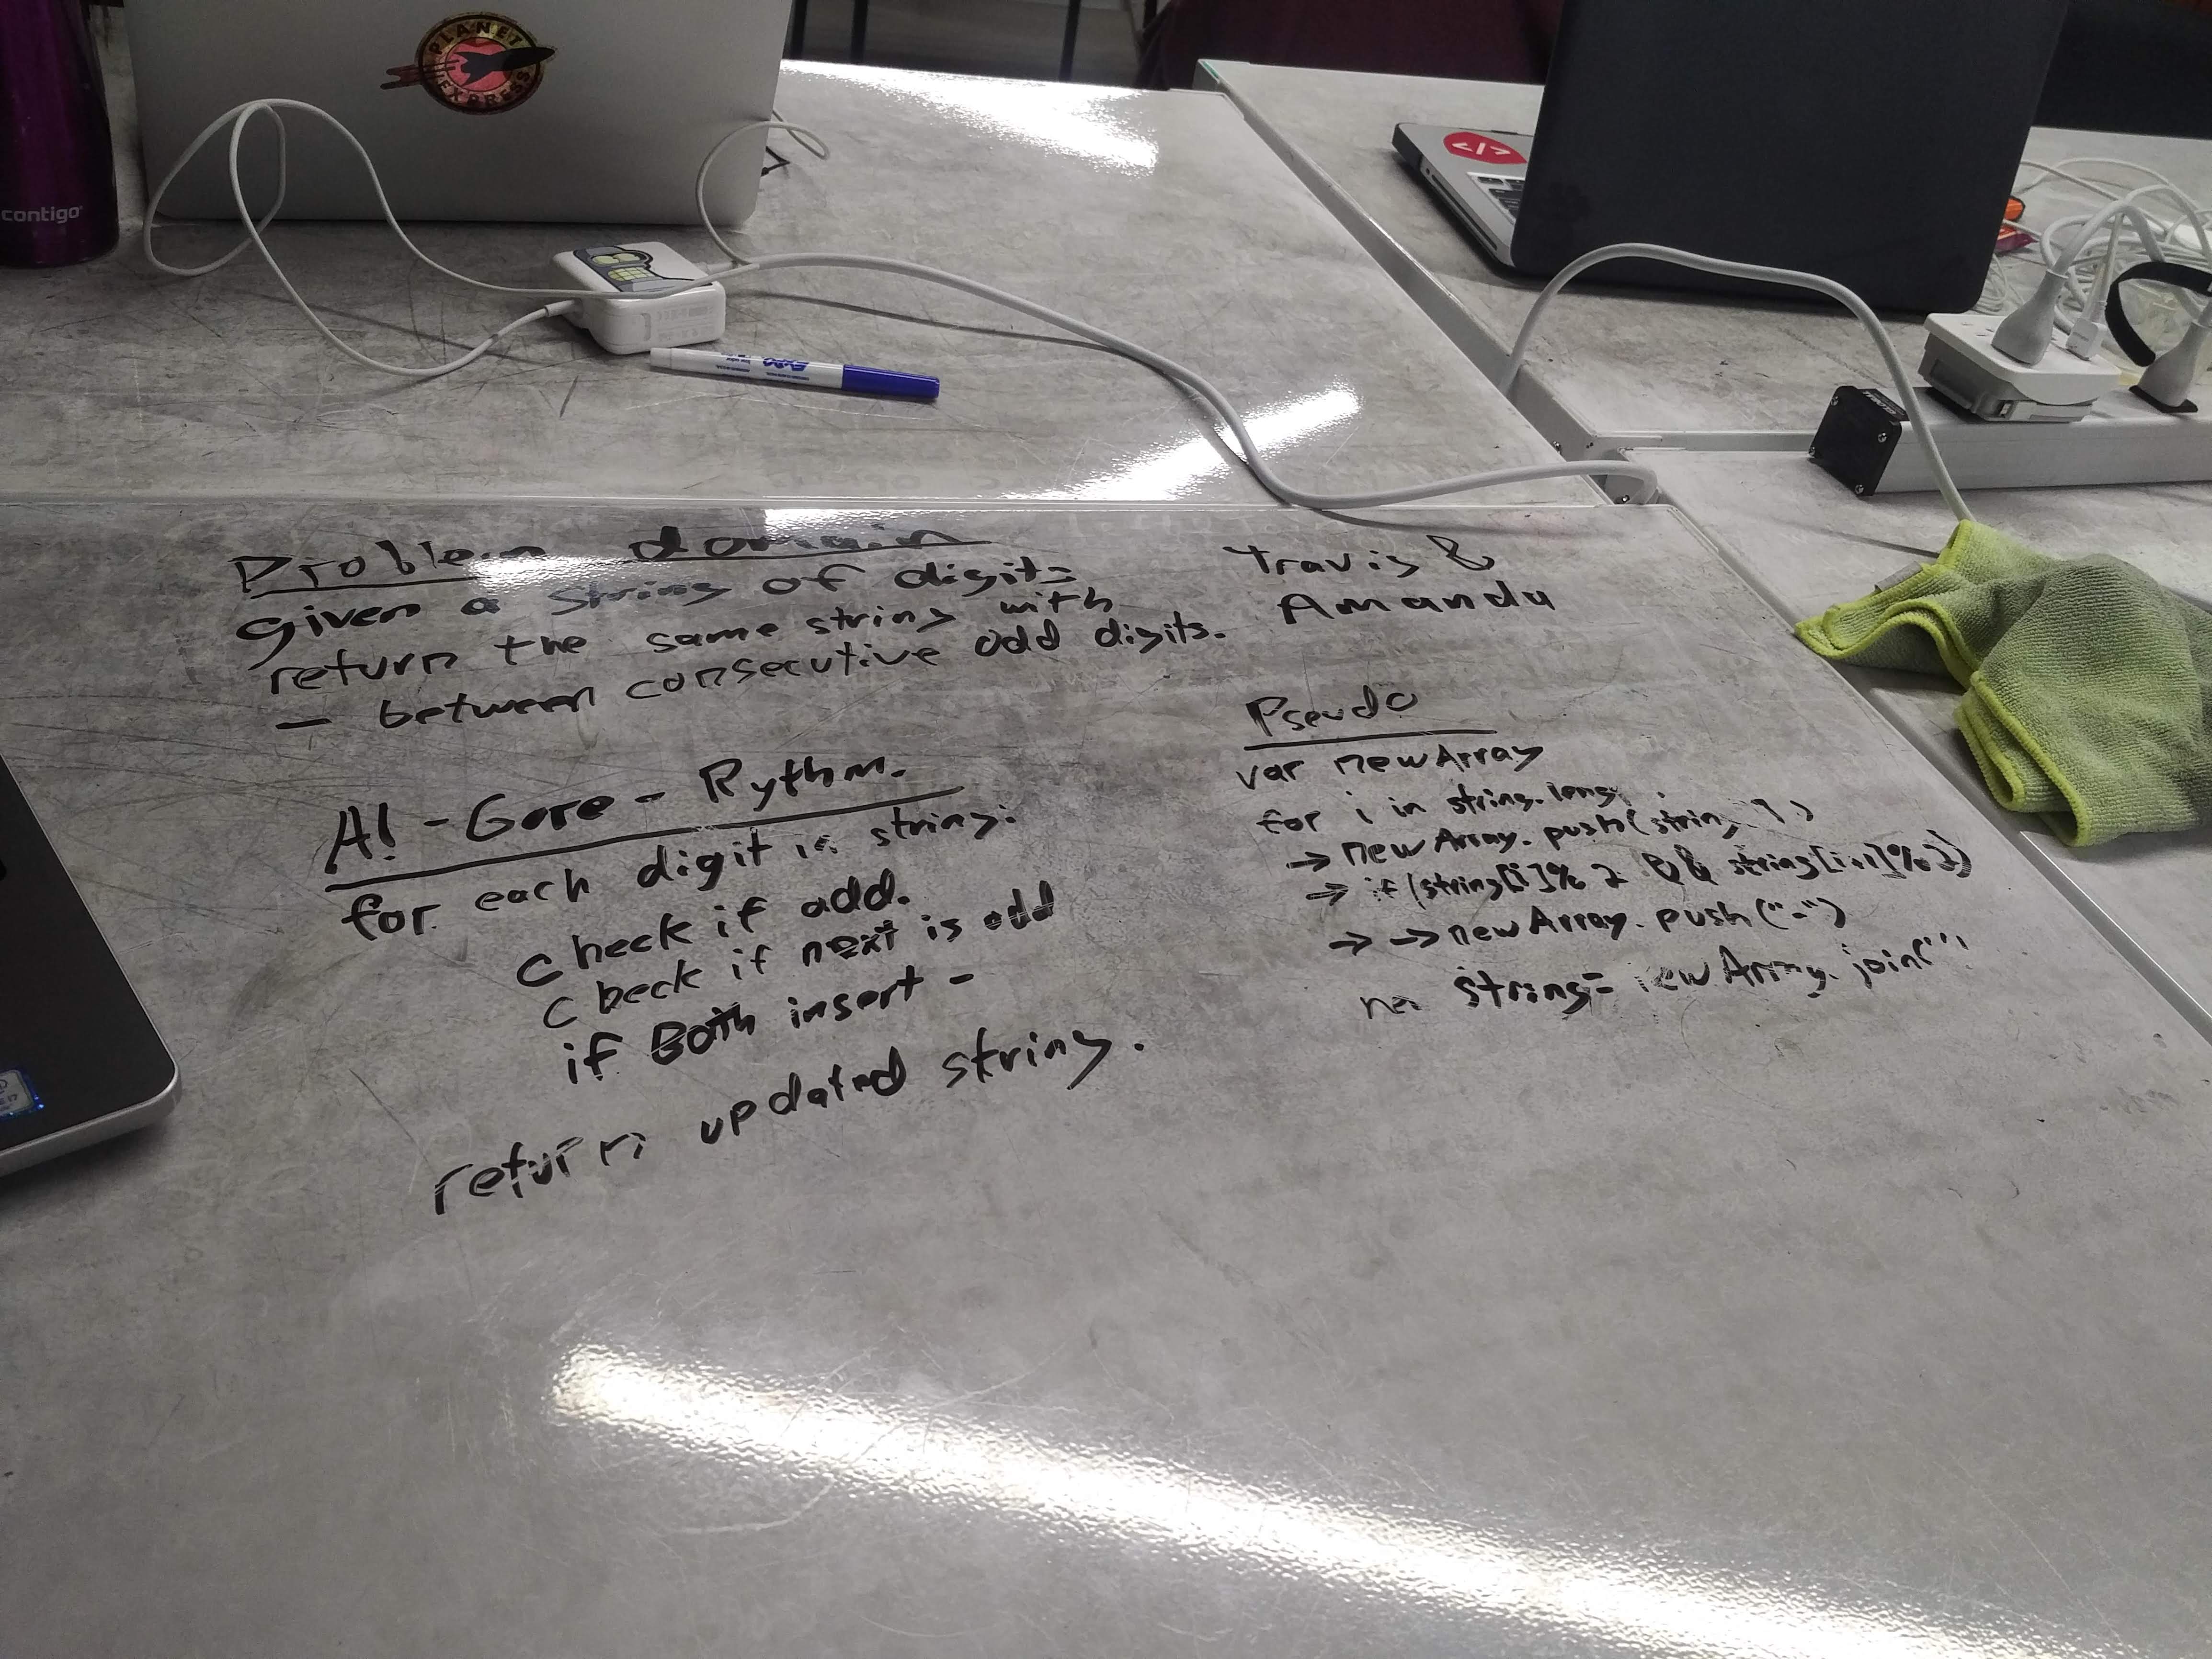 PLANET
EXPRESS
contigo
</>
EXPO
GLOBAL
Problem domain
given a string of digits
return the same string with
- between consecutive odd digits.
Travis &
Amanda
Al-Gore-Rythm.
for each digit in string:
check if add.
check if next is odd
if Both insert -
return updated string.
Pseudo
var newArray
for i in string.leng
→ newArray.push(string
→ if (string[i]%2 && string[i+1]%2)
→ → newArray.push("-")
string= newArray.join(''